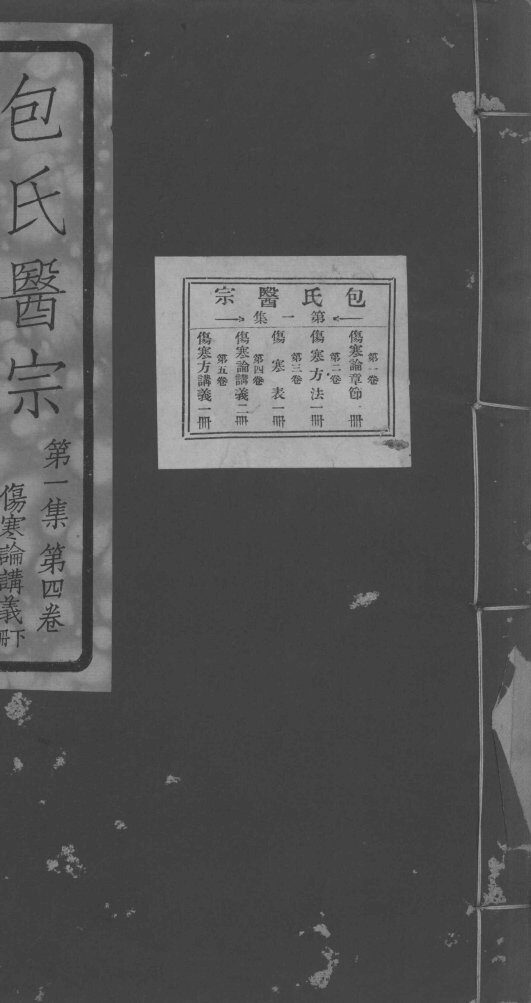 包氏醫宗
第一集
第一卷
傷寒論章節一冊
第二卷
傷寒方法一冊
第三卷
傷寒表一冊
第四卷
傷寒論講義二冊
第五卷
傷寒方講義一冊
包氏醫宗
第一集 第四卷
傷寒論講義下冊